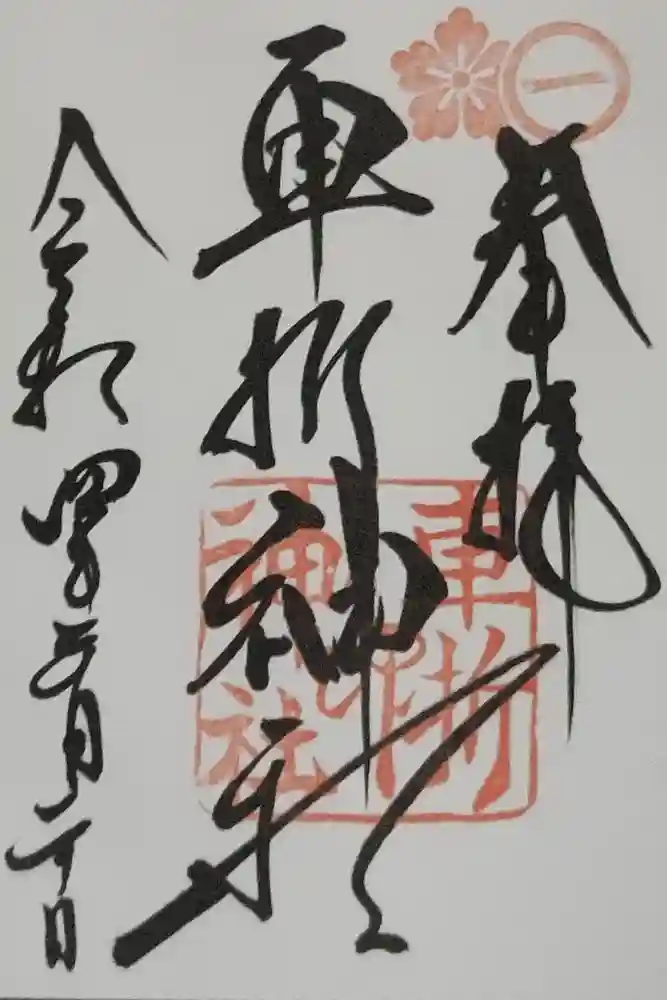 奉拝
車折神社
車折神社
令和四年三月二十日